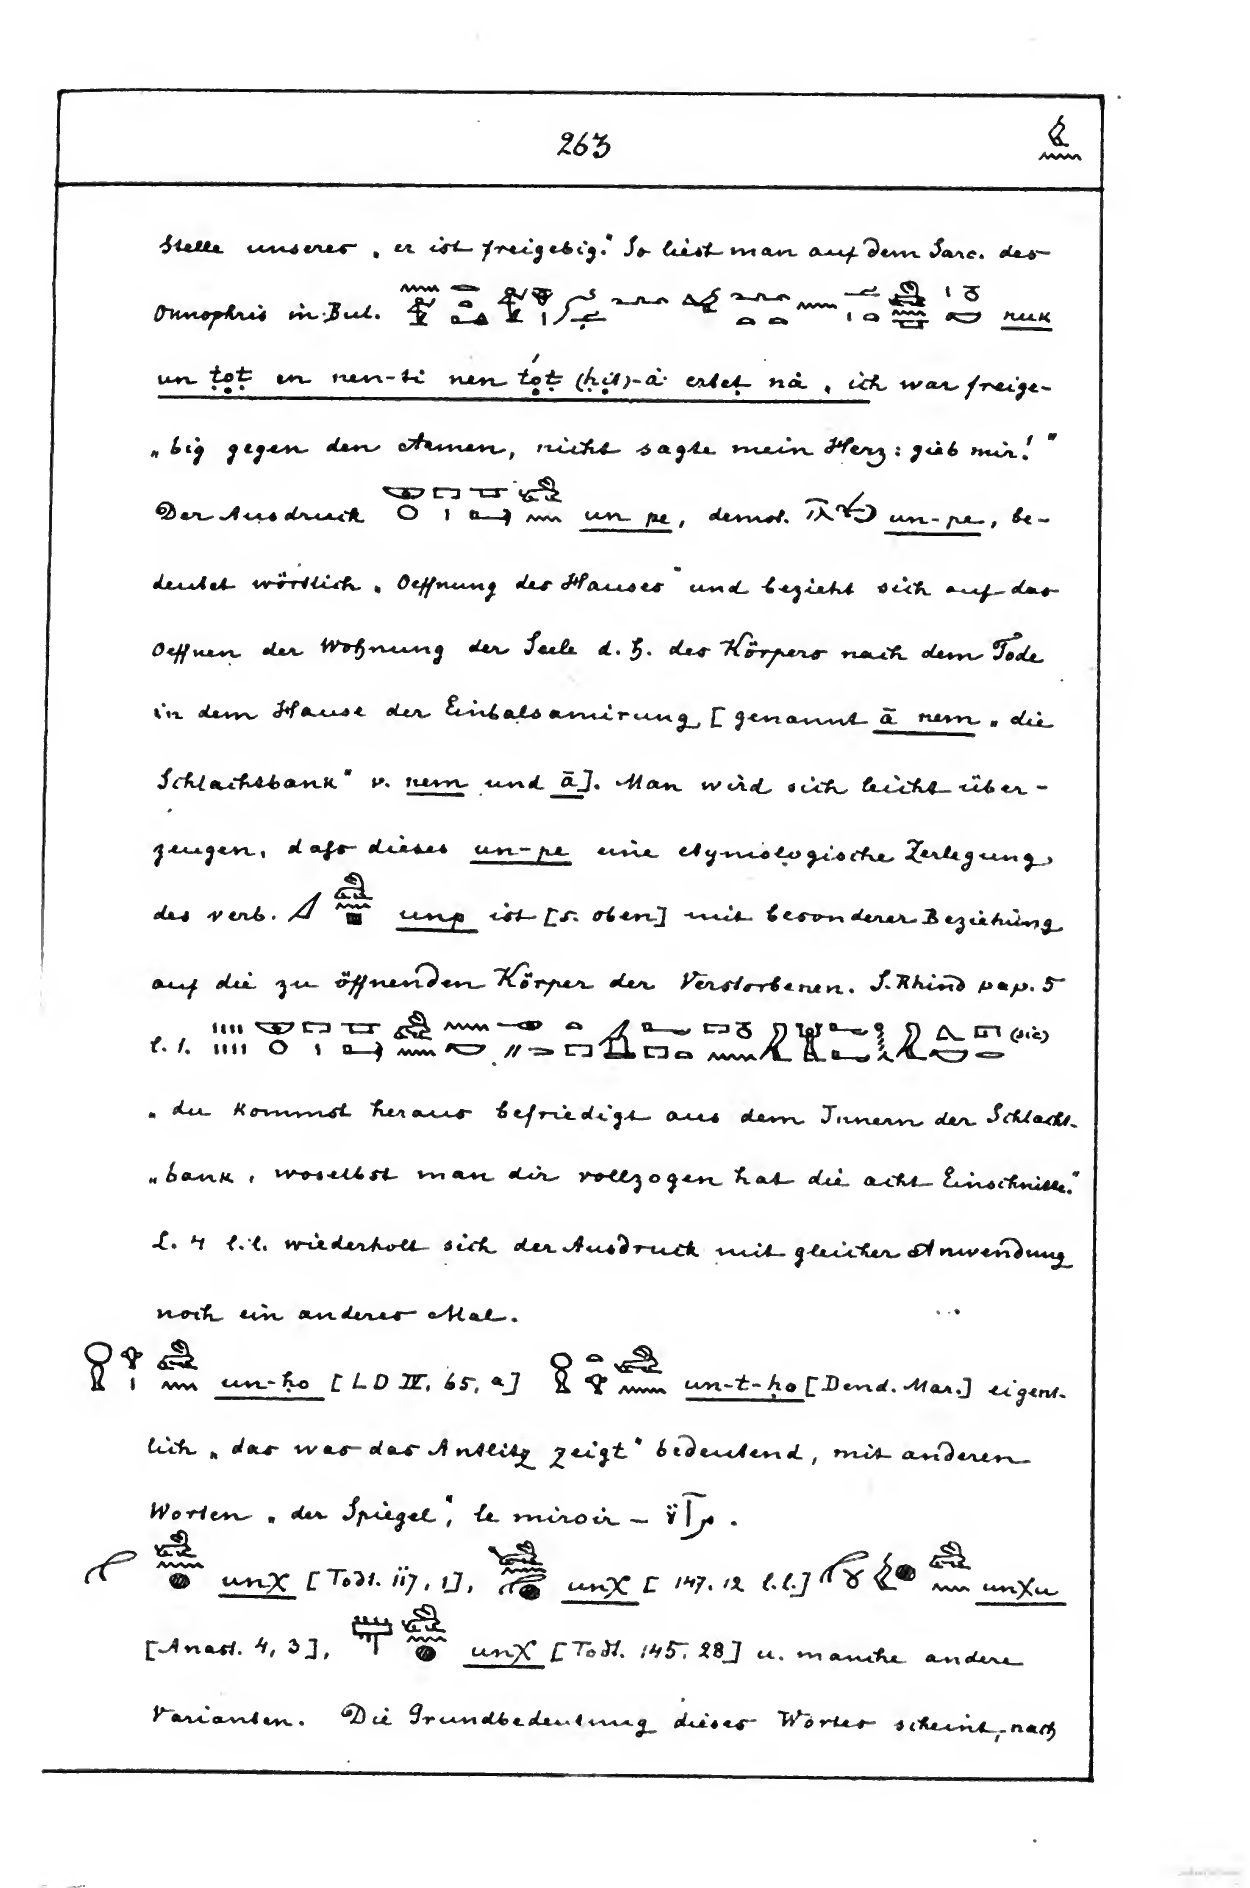 263
Stelle unseres „er ist freigebig.“ So liest man auf dem Sarc. des
Onnophris in Bul. nuk
un ṭoṭ en nen-ti nen ṭóṭ (ḥȧt)-ȧ erteṭ nȧ „ich war freige-
„big gegen den Armen, nicht sagte mein Herz: gieb mir!“
Der Ausdruck un pe, demot. un-pe, be-
deutet wörtlich „Oeffnung des Hauses“ und bezieht sich auf das
Oeffnen der Wohnung der Seele d. h. des Körpers nach dem Tode
in dem Hause der Einbalsamirung [genannt ā nem „die
Schlachtbank“ v. nem und ā]. Man wird sich leicht über-
zeugen, dafs dieses un-pe eine etymologische Zerlegung
des verb. unp ist [s. oben] mit besonderer Beziehung
auf die zu öffnenden Körper der Verstorbenen. S. Rhind pap. 5
l. 1. (sic)
„du kommst heraus befriedigt aus dem Innern der Schlacht-
„bank, woselbst man dir vollzogen hat die acht Einschnitte.“
L. 4 l.l. wiederholt sich der Ausdruck mit gleicher Anwendung
noch ein anderes Mal.
un-ḥo [LD IV, 65, a] un-t-ḥo [Dend. Mar.] eigent-
lich „das was das Antlitz zeigt“ bedeutend, mit anderen
Worten „der Spiegel“, le miroir – .
unχ [Todt. 117, 1], unχ [147. 12 l.l.] unχu
[Anast. 4, 3], unχ [Todt. 145. 28] u. manche andere
Varianten. Die Grundbedeutung dieses Wortes scheint, nach